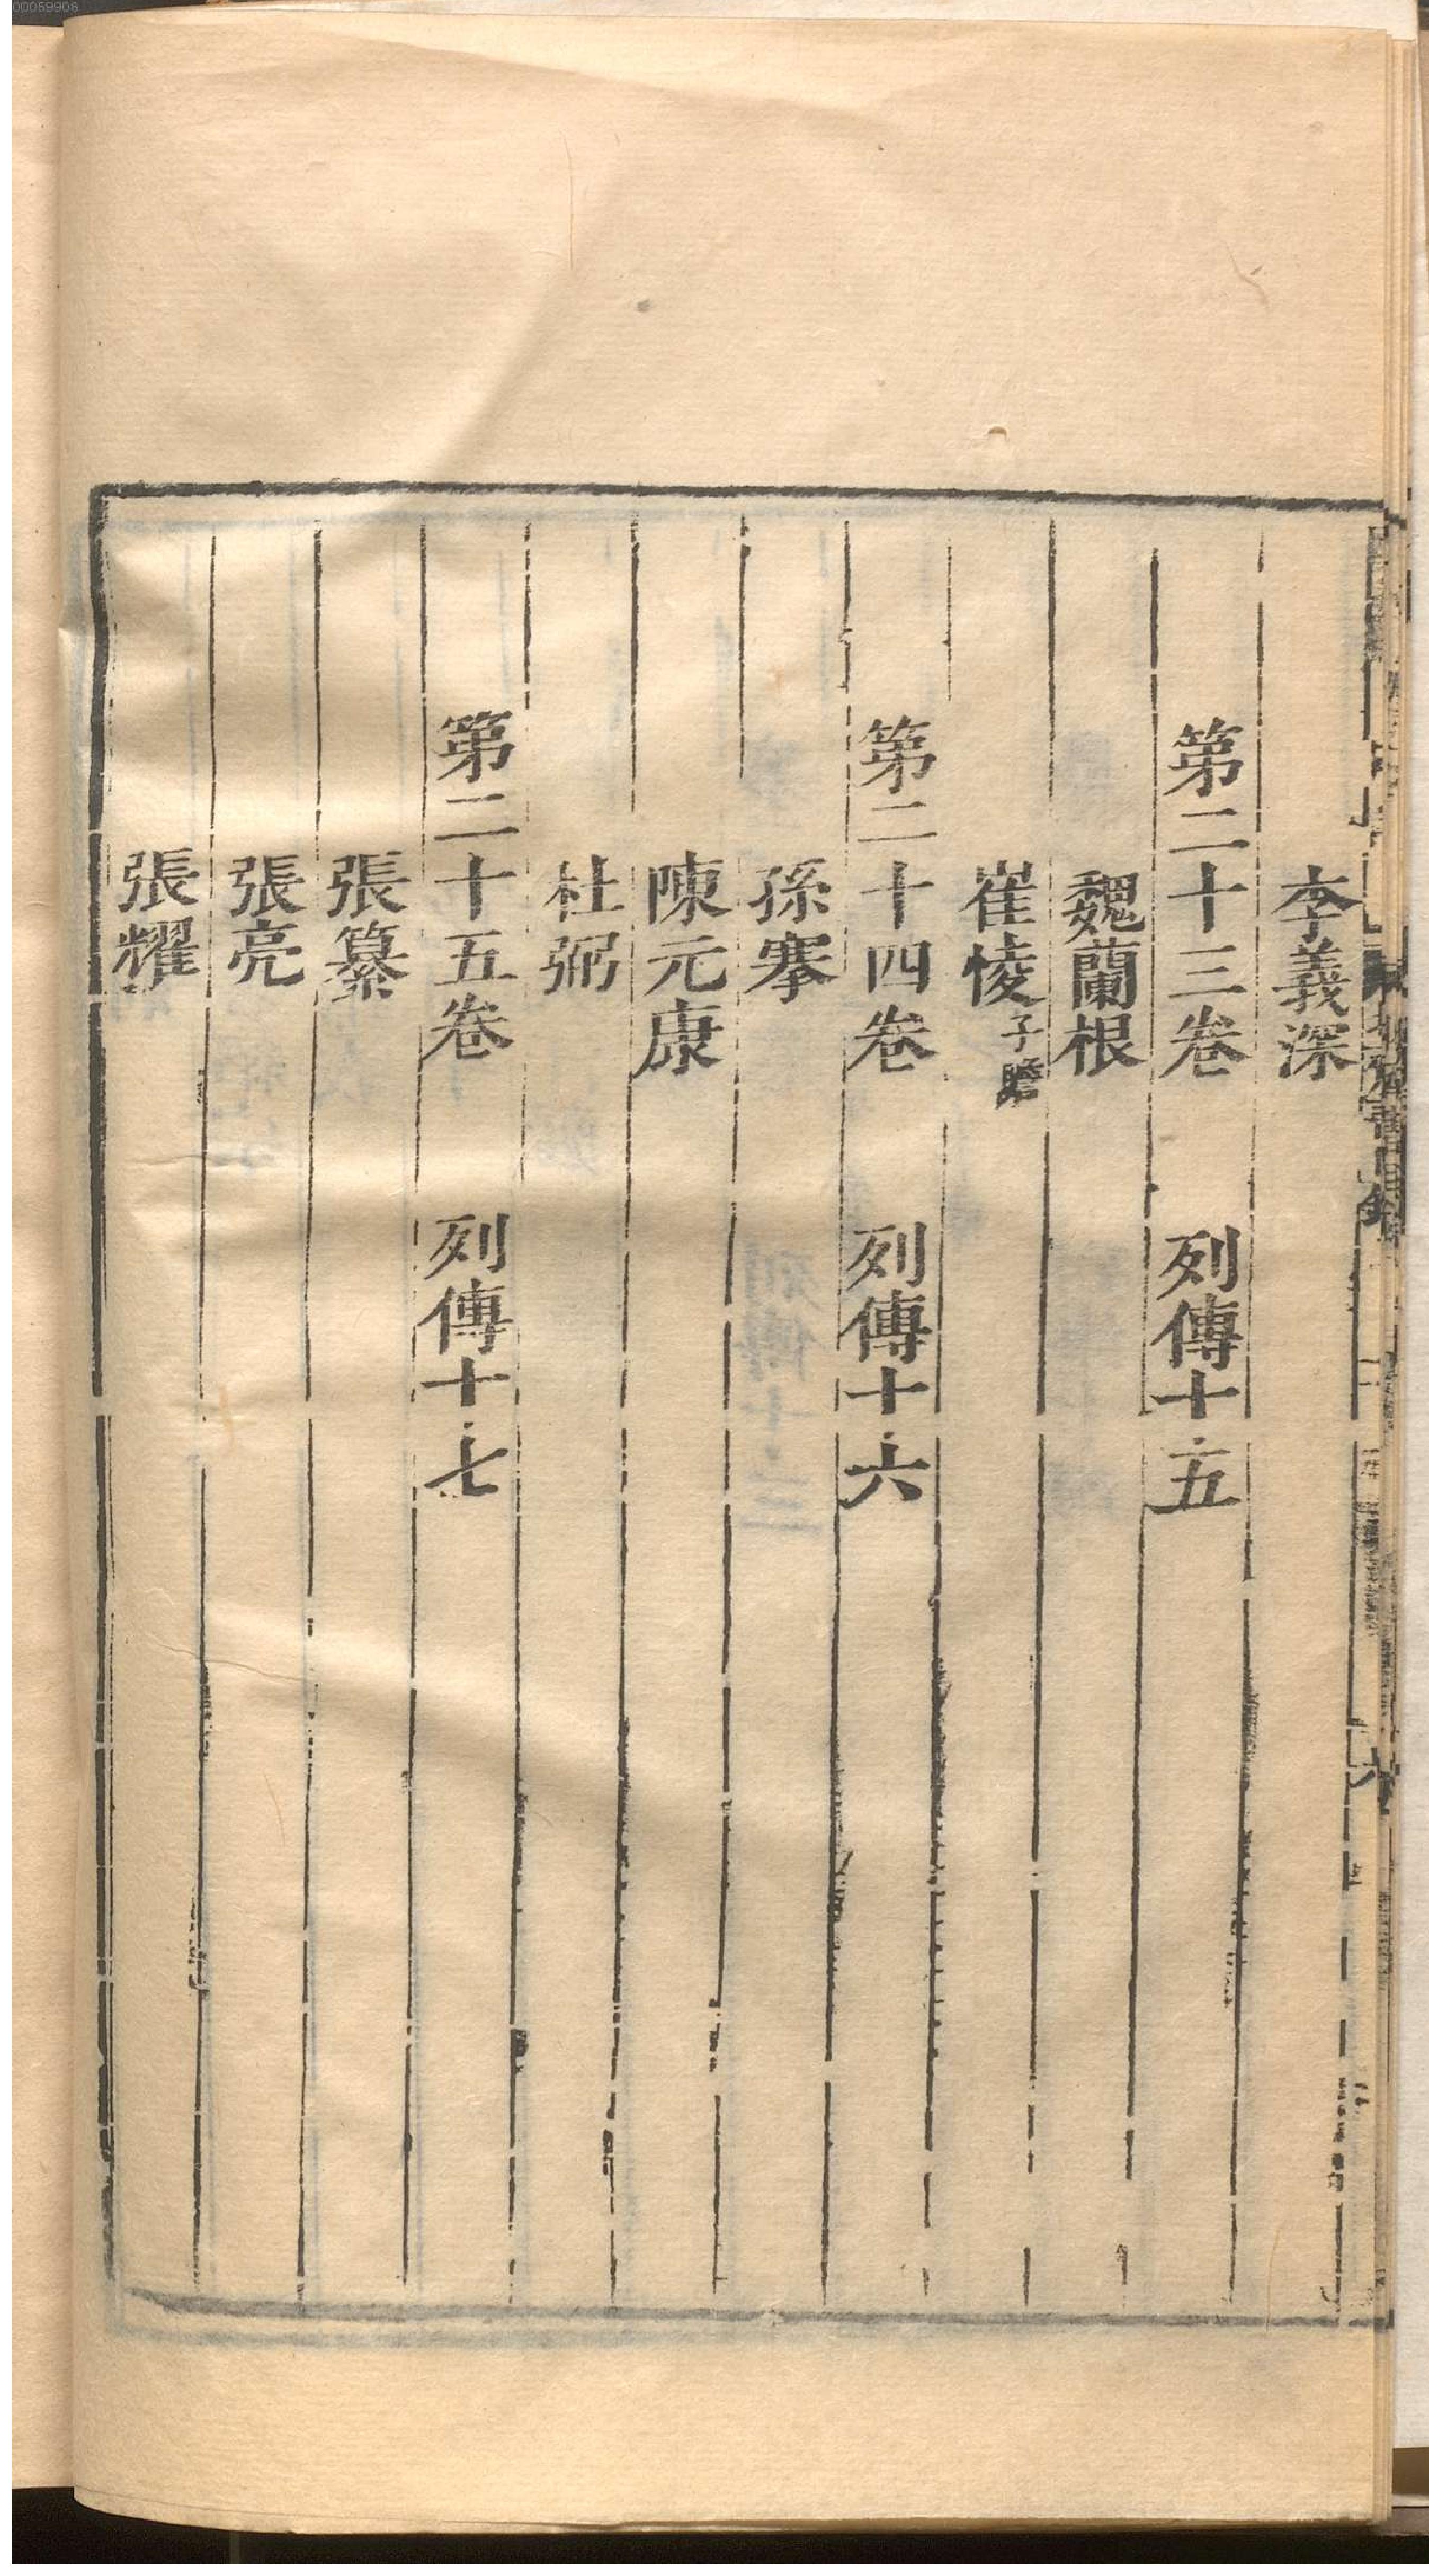 李義深
第二十三卷　列傳十五
魏蘭根
崔㥄子瞻
第二十四卷　列傳十六
孫搴
陳元康
杜弼
第二十五卷　列傳十七
張纂
張亮
張耀
00059908